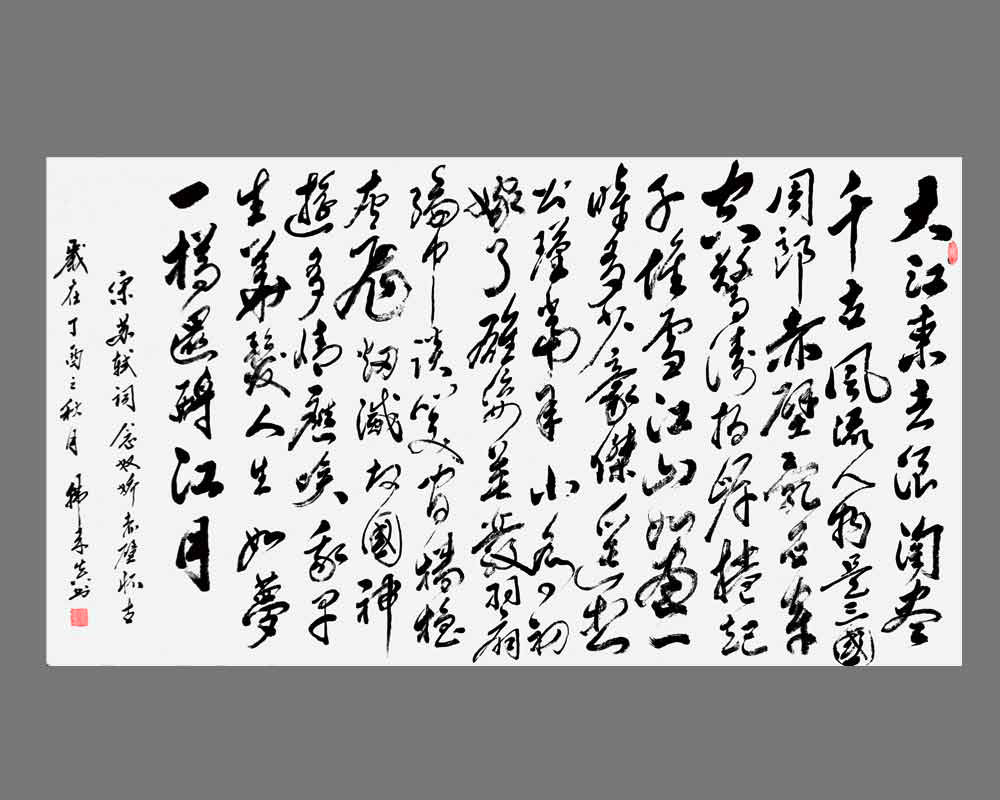 大江東去浪淘尽
千古風流人物是三國
周郎赤壁亂石穿
空驚濤拍岸捲起
千堆雪江山如画一
時多少豪傑遥想
公瑾當年小喬初
嫁了雄姿英發羽扇
綸巾談笑間檣櫓
灰飛烟滅故國神
遊多情應笑我早
生華髮人生如夢
一樽還酹江月
宋苏轼词念奴娇赤壁怀古
歲在丁酉之秋月